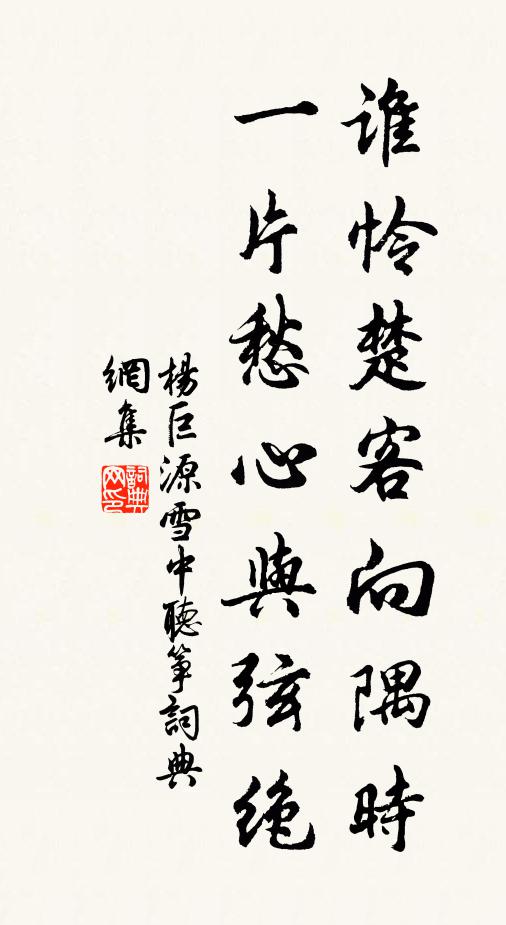 谁怜楚客向隅時
一片愁心與弦绝
楊巨源雪中聽筝詞典
網集
詞典網印